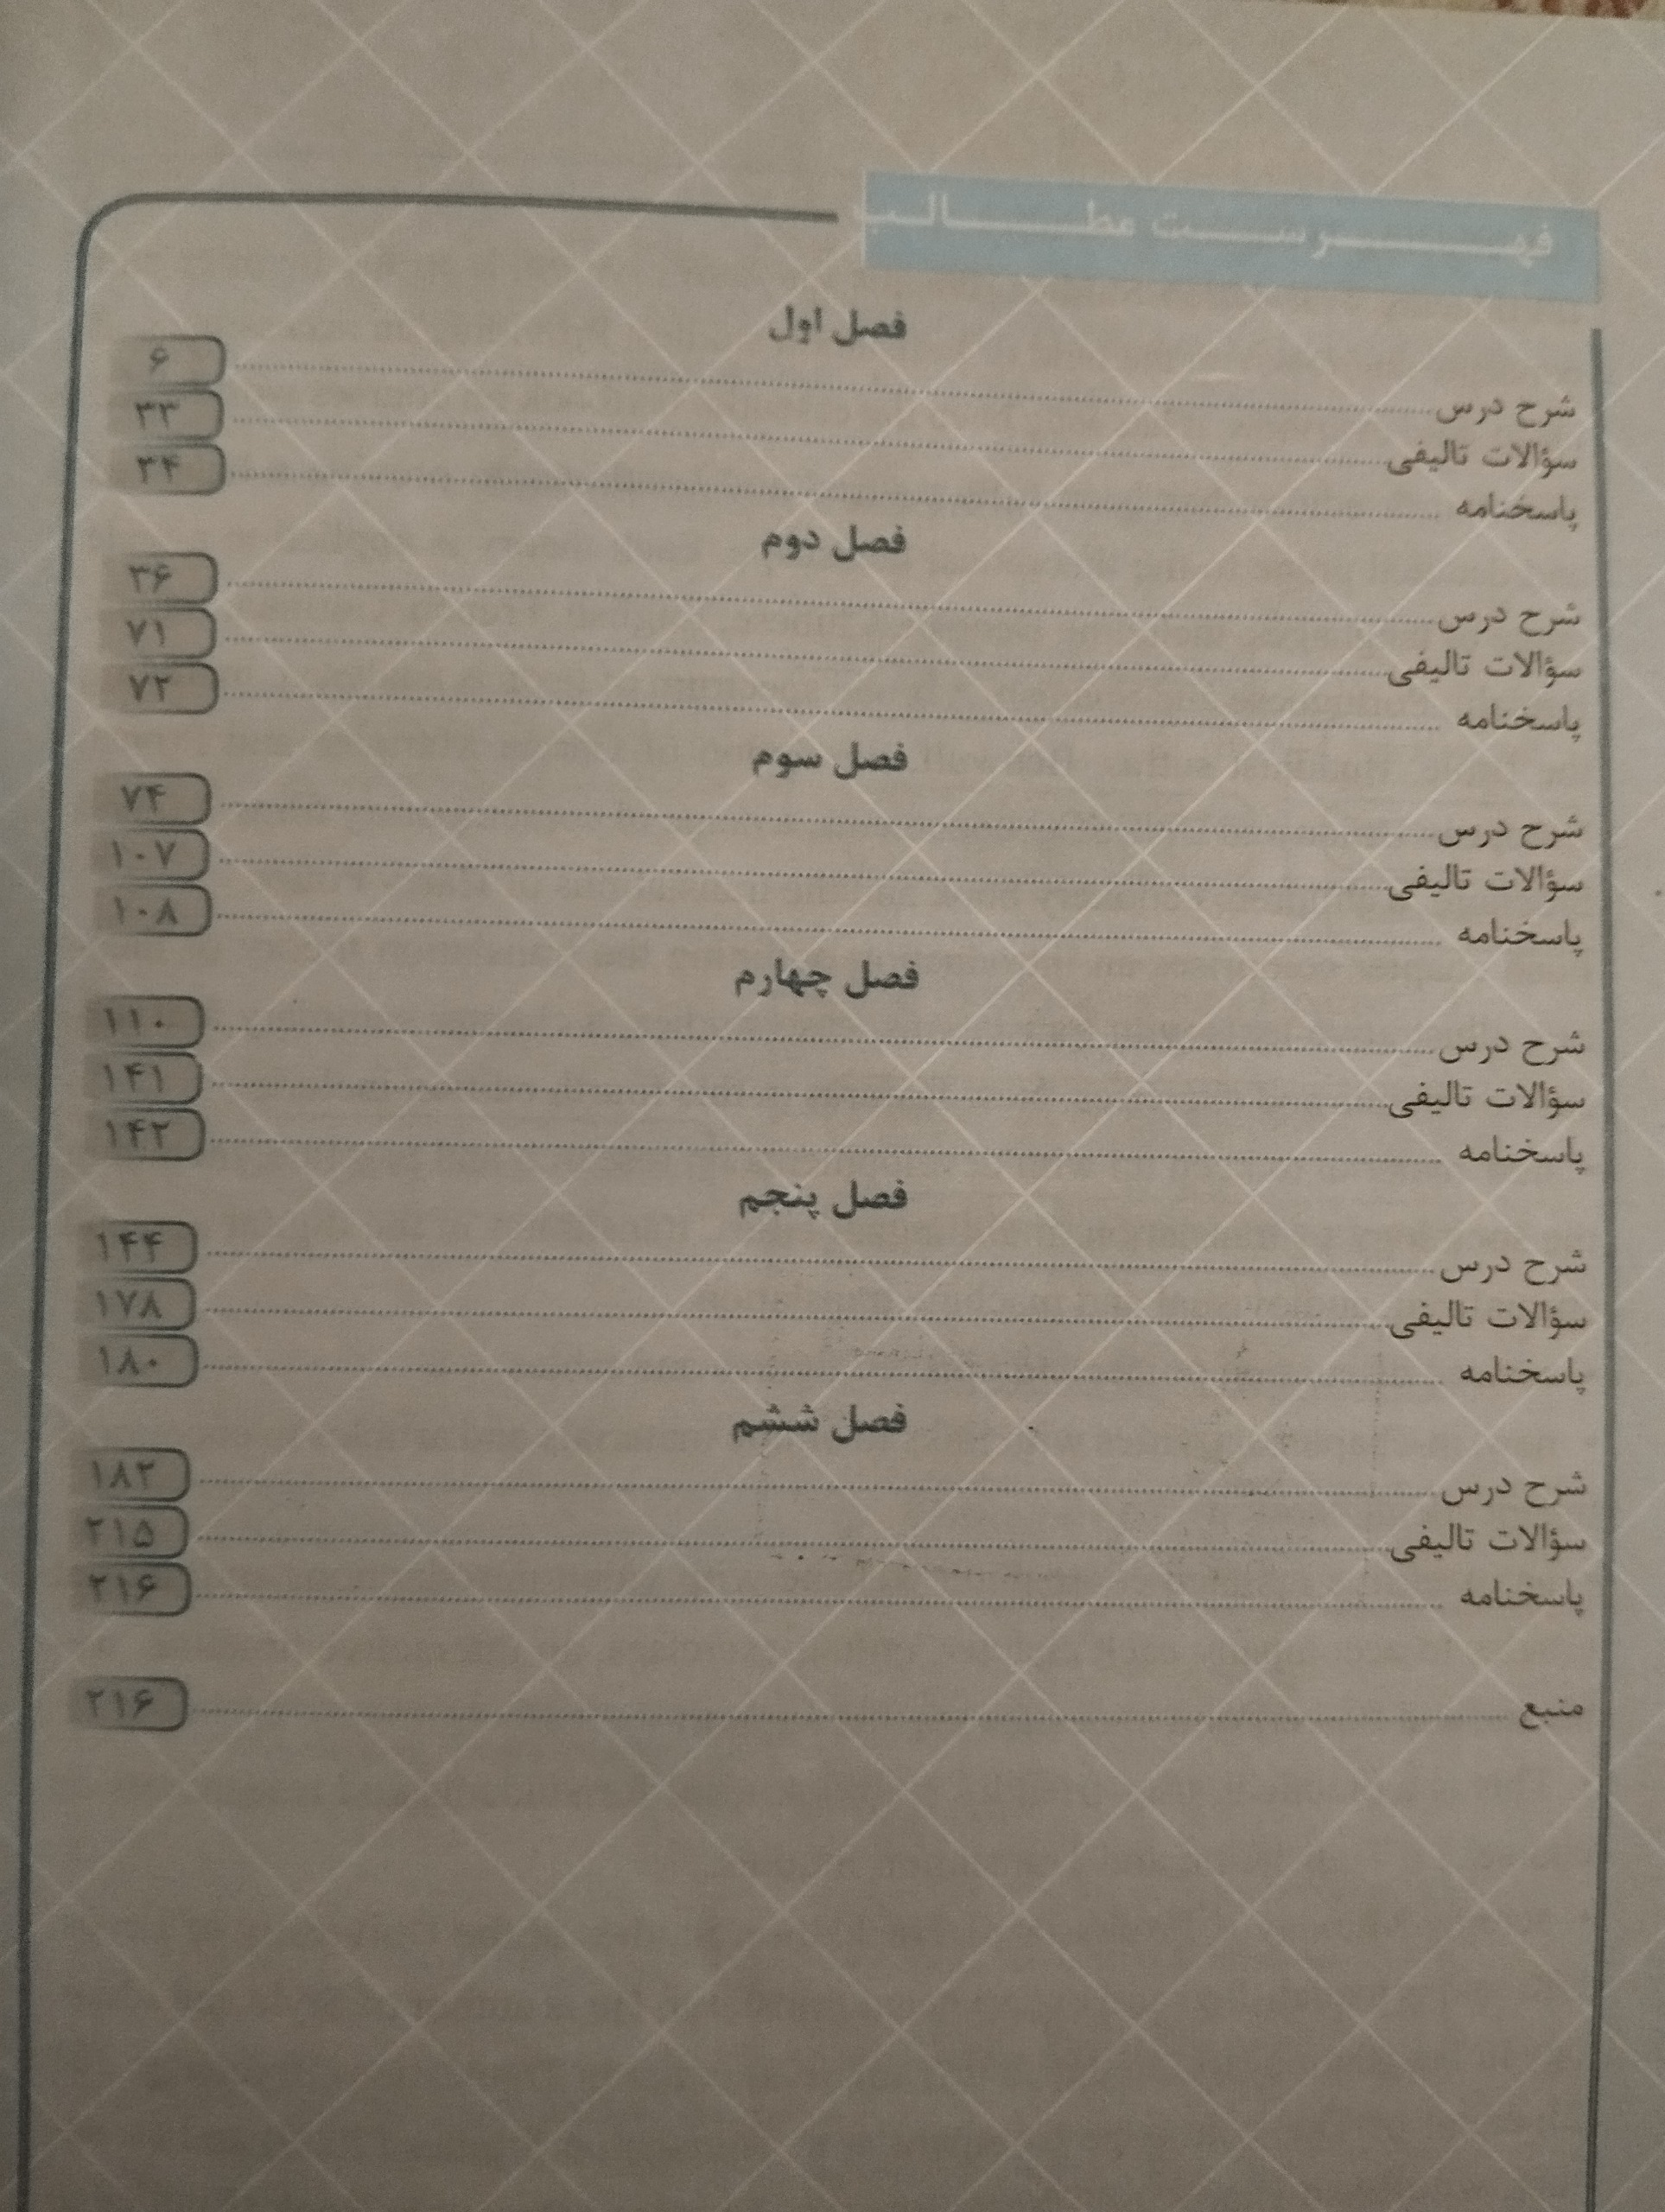 فهرست مطالب
فصل اول
شرح درس ........ ۶
سؤالات تالیفی ........ ۳۳
پاسخنامه ........ ۳۴
فصل دوم
شرح درس ........ ۳۶
سؤالات تالیفی ........ ۷۱
پاسخنامه ........ ۷۲
فصل سوم
شرح درس ........ ۷۴
سؤالات تالیفی ........ ۱۰۷
پاسخنامه ........ ۱۰۸
فصل چهارم
شرح درس ........ ۱۱۰
سؤالات تالیفی ........ ۱۴۱
پاسخنامه ........ ۱۴۲
فصل پنجم
شرح درس ........ ۱۴۴
سؤالات تالیفی ........ ۱۷۸
پاسخنامه ........ ۱۸۰
فصل ششم
شرح درس ........ ۱۸۲
سؤالات تالیفی ........ ۲۱۵
پاسخنامه ........ ۲۱۶
منبع ........ ۲۱۶